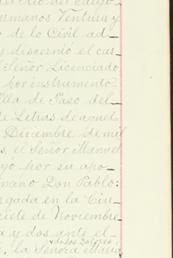 hermanos Ventura y
o de lo Civil ad-
y discernió el car-
Señor Licenciado
por instrumento
Villa de Paso del
de Letras de aquel
Diciembre de mil
s, el Señor Manuel
yo por su apo-
mano Don Pablo:
rgada en la Ciu-
siete de Noviembre
a y dos ante el
la Señora María